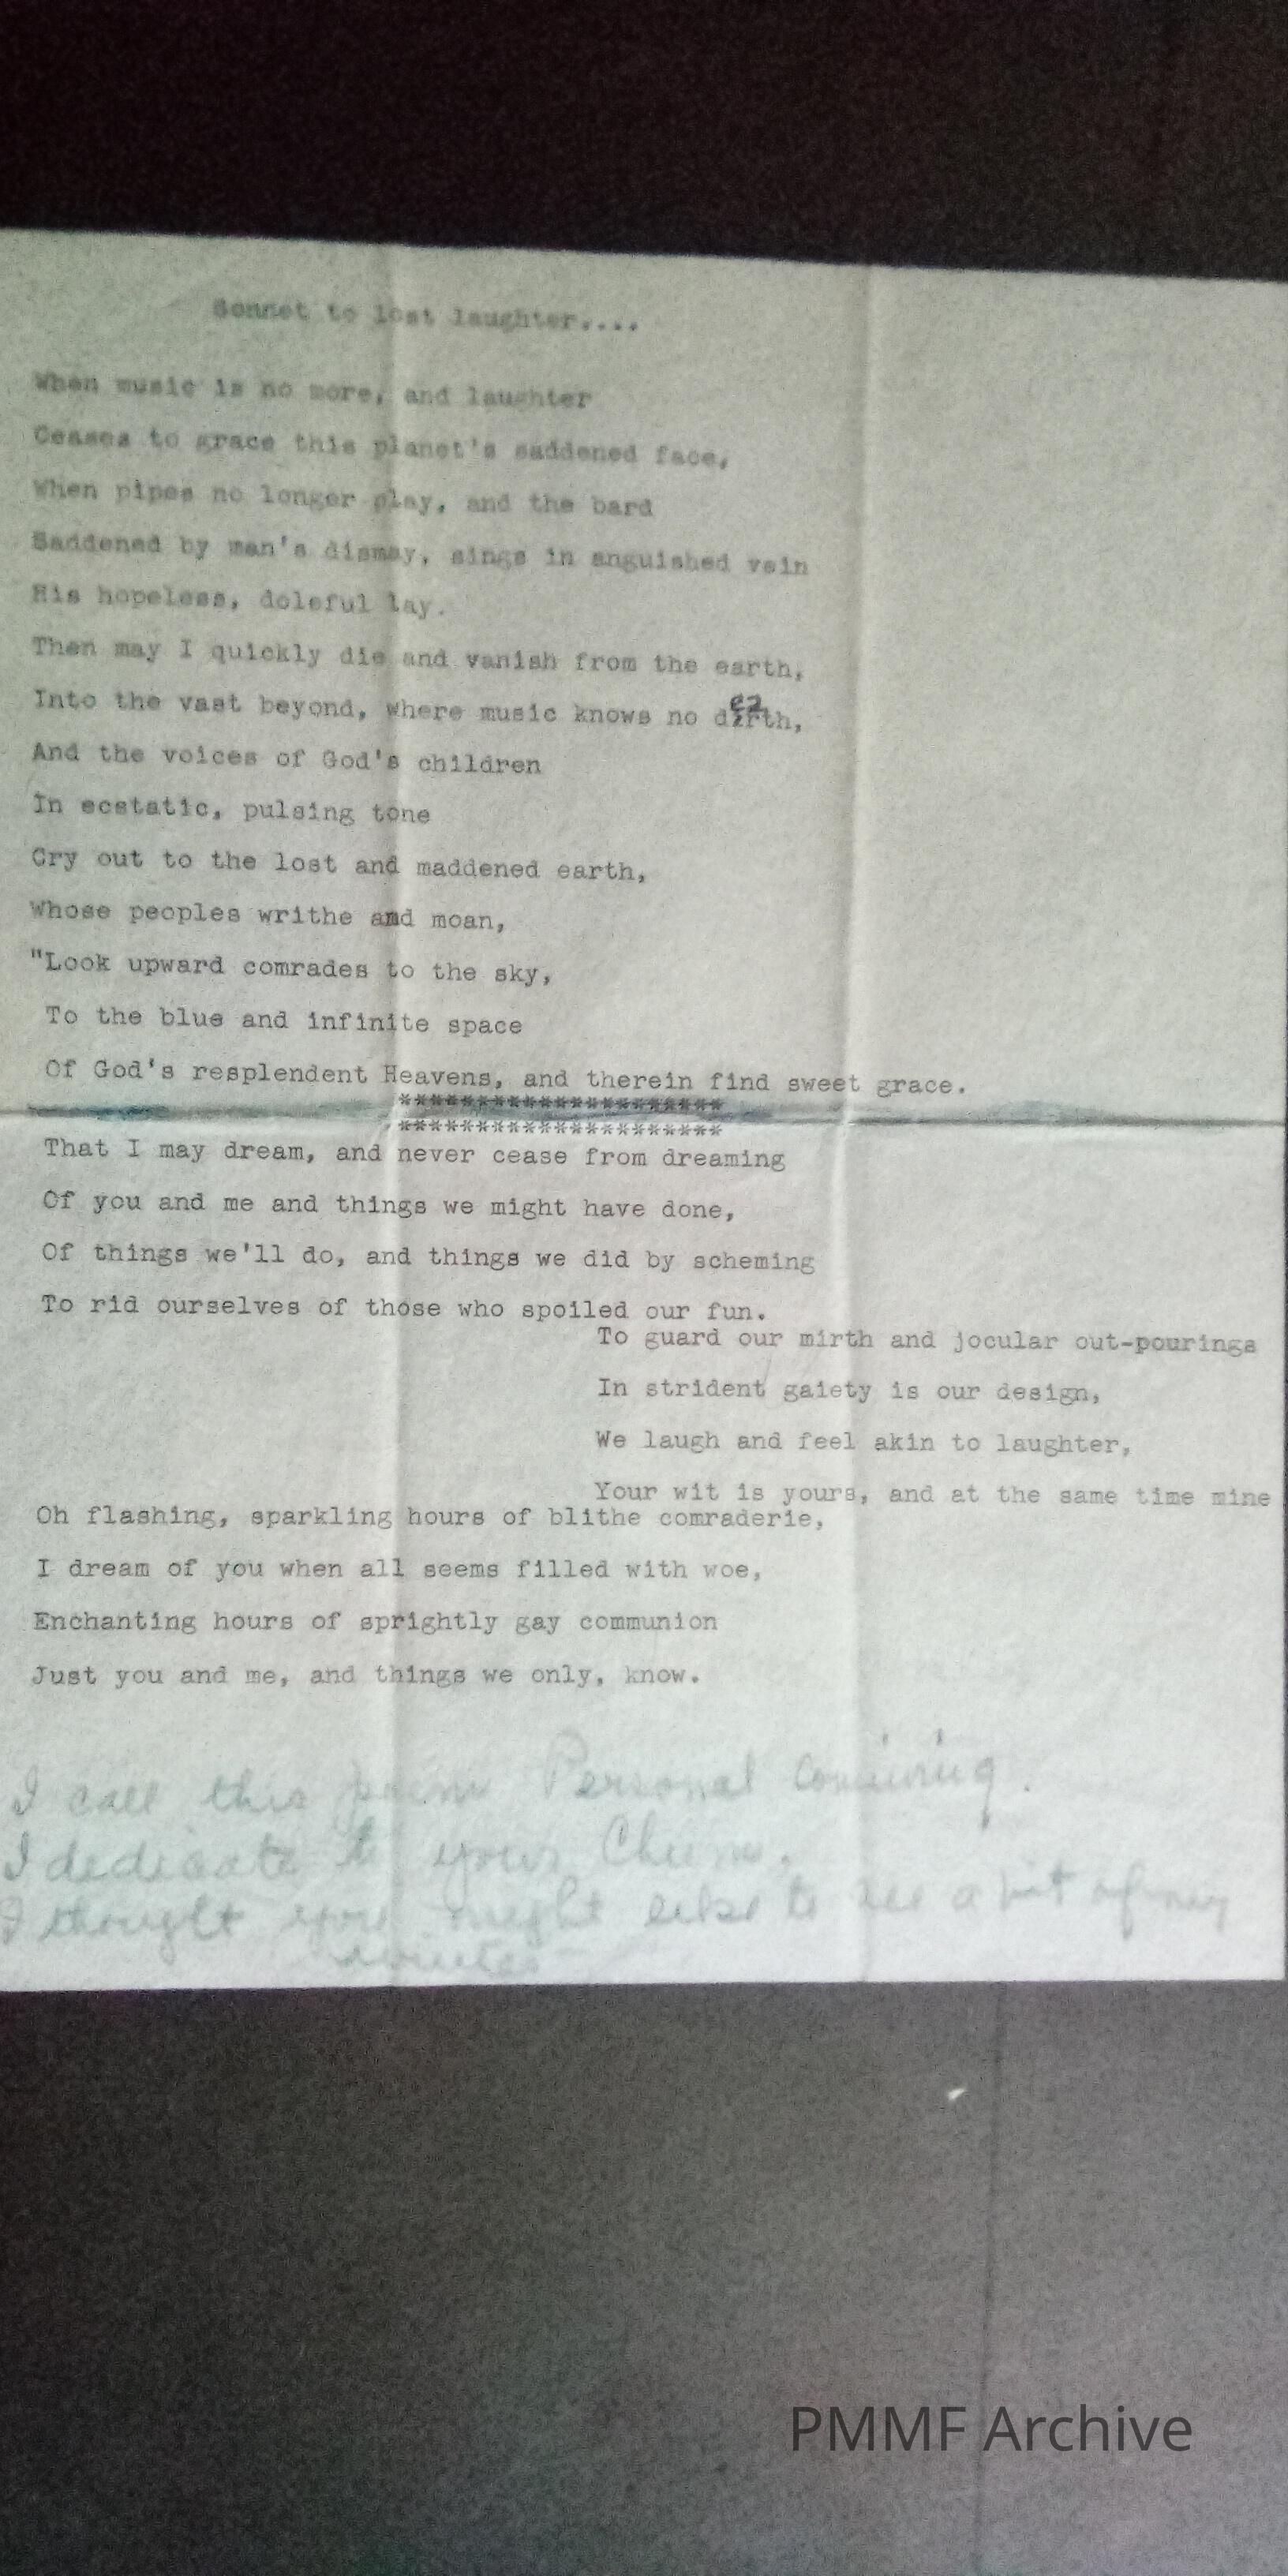 Sonnet to lost laughter....
When music is no more, and laughter
Ceases to grace this planet's saddened face,
When pipes no longer play, and the bard
Saddened by man's dismay, sings in anguished vein
His hopeless, doleful lay.
Then may I quickly die and vanish from the earth,
Into the vast beyond, where music knows no dearth,
And the voices of God's children
In ecstatic, pulsing tone
Cry out to the lost and maddened earth,
Whose peoples writhe and moan,
"Look upward comrades to the sky,
To the blue and infinite space
Of God's resplendent Heavens, and therein find sweet grace.
*********************
*********************
That I may dream, and never cease from dreaming
Of you and me and things we might have done,
Of things we'll do, and things we did by scheming
To rid ourselves of those who spoiled our fun.
To guard our mirth and jocular out-pourings
In strident gaiety is our design,
We laugh and feel akin to laughter,
Your wit is yours, and at the same time mine
Oh flashing, sparkling hours of blithe comraderie,
I dream of you when all seems filled with woe,
Enchanting hours of sprightly gay communion
Just you and me, and things we only, know.
I call this poem Personal
I dedicate to your
I thought you might like to see a bit of my
PMMF Archive